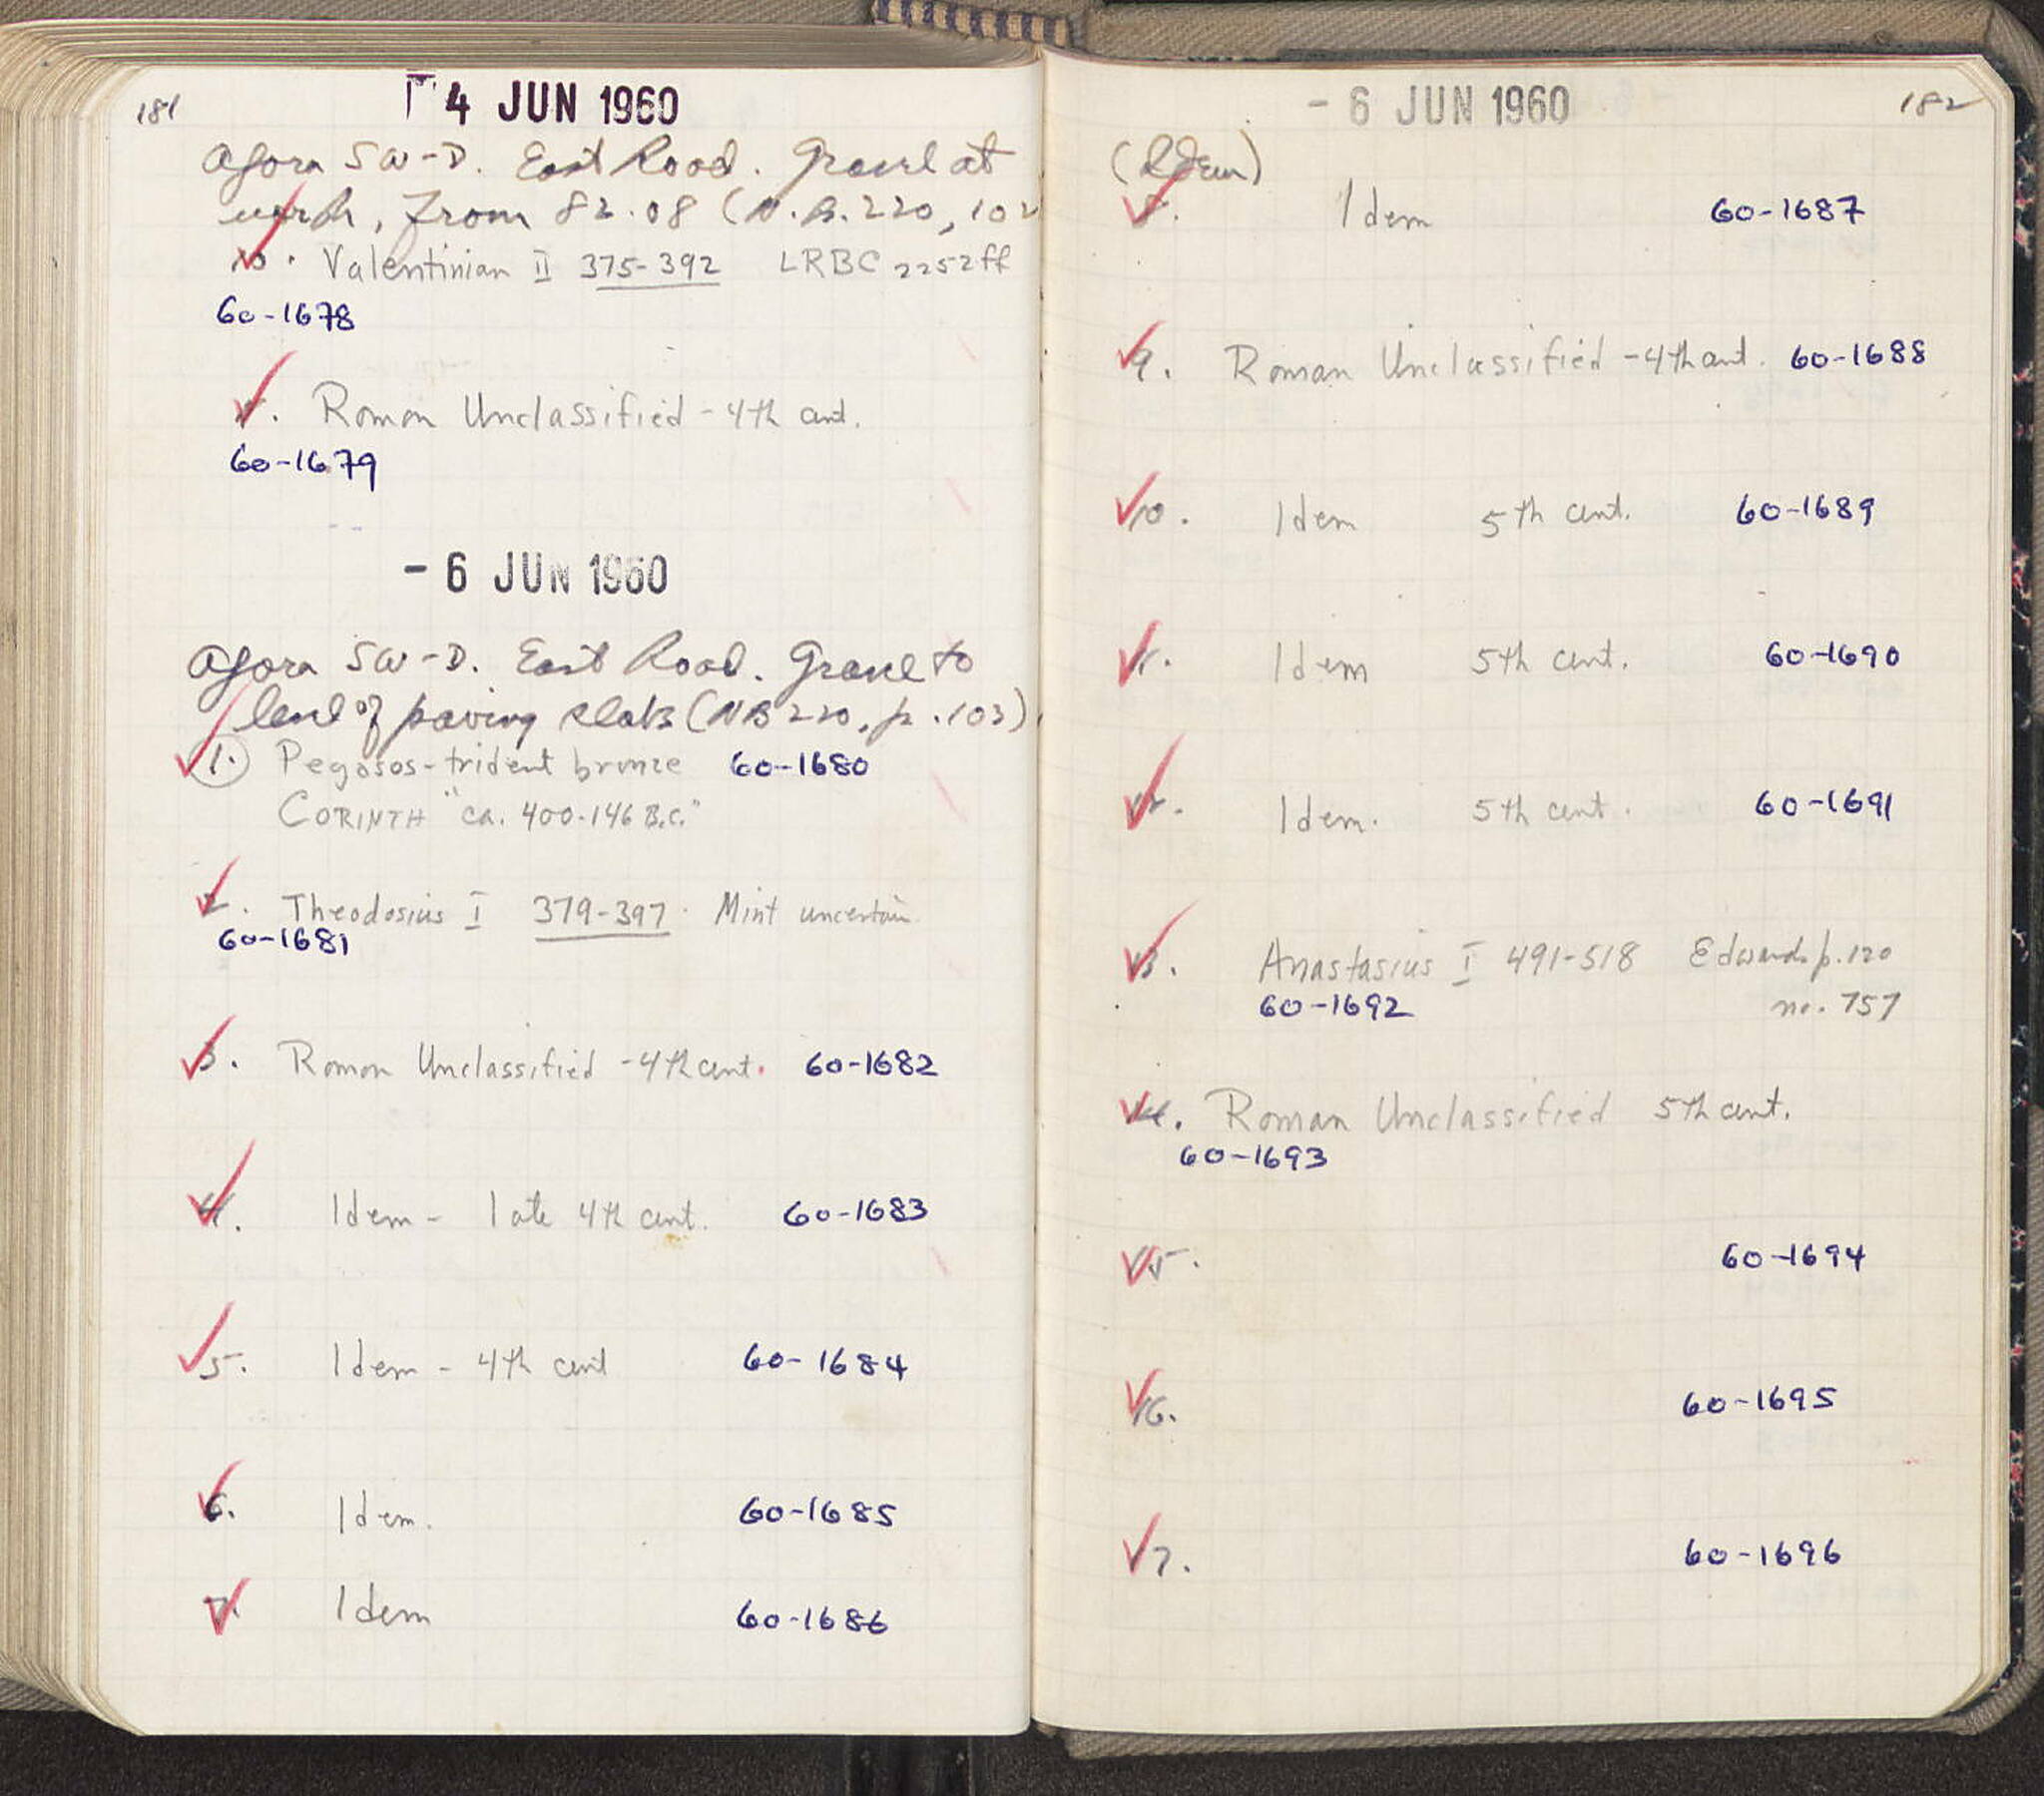 181
4 JUN 1960
Agora SW-D. East Road. Gravel at
north, from 82.08 (N.B.220, 102
10. Valentinian II 375-392 LRBC 2252ff
60-1678
Roman Unclassified - 4th cent.
60-1679
- 6 JUN 1960
Agora SW-D. East Road. Gravel to
level of paving slabs (NB 220, p. 103)
1. Pegasos-trident bronze 60-1680
CORINTH "ca. 400-146 B.C."
2. Theodosius I 379-397 Mint uncertain
60-1681
3. Roman Unclassified - 4th cent. 60-1682
4. Idem - late 4th cent. 60-1683
5. Idem - 4th cent 60-1684
6. Idem. 60-1685
7. Idem 60-1686
- 6 JUN 1960
182
(Idem)
8. Idem 60-1687
9. Roman Unclassified - 4th cent. 60-1688
10. Idem 5th cent. 60-1689
11. Idem 5th cent. 60-1690
12. Idem. 5th cent. 60-1691
13. Anastasius I 491-518 Edwards p. 120
60-1692 no. 757
14. Roman Unclassified 5th cent.
60-1693
15. 60-1694
16. 60-1695
17. 60-1696